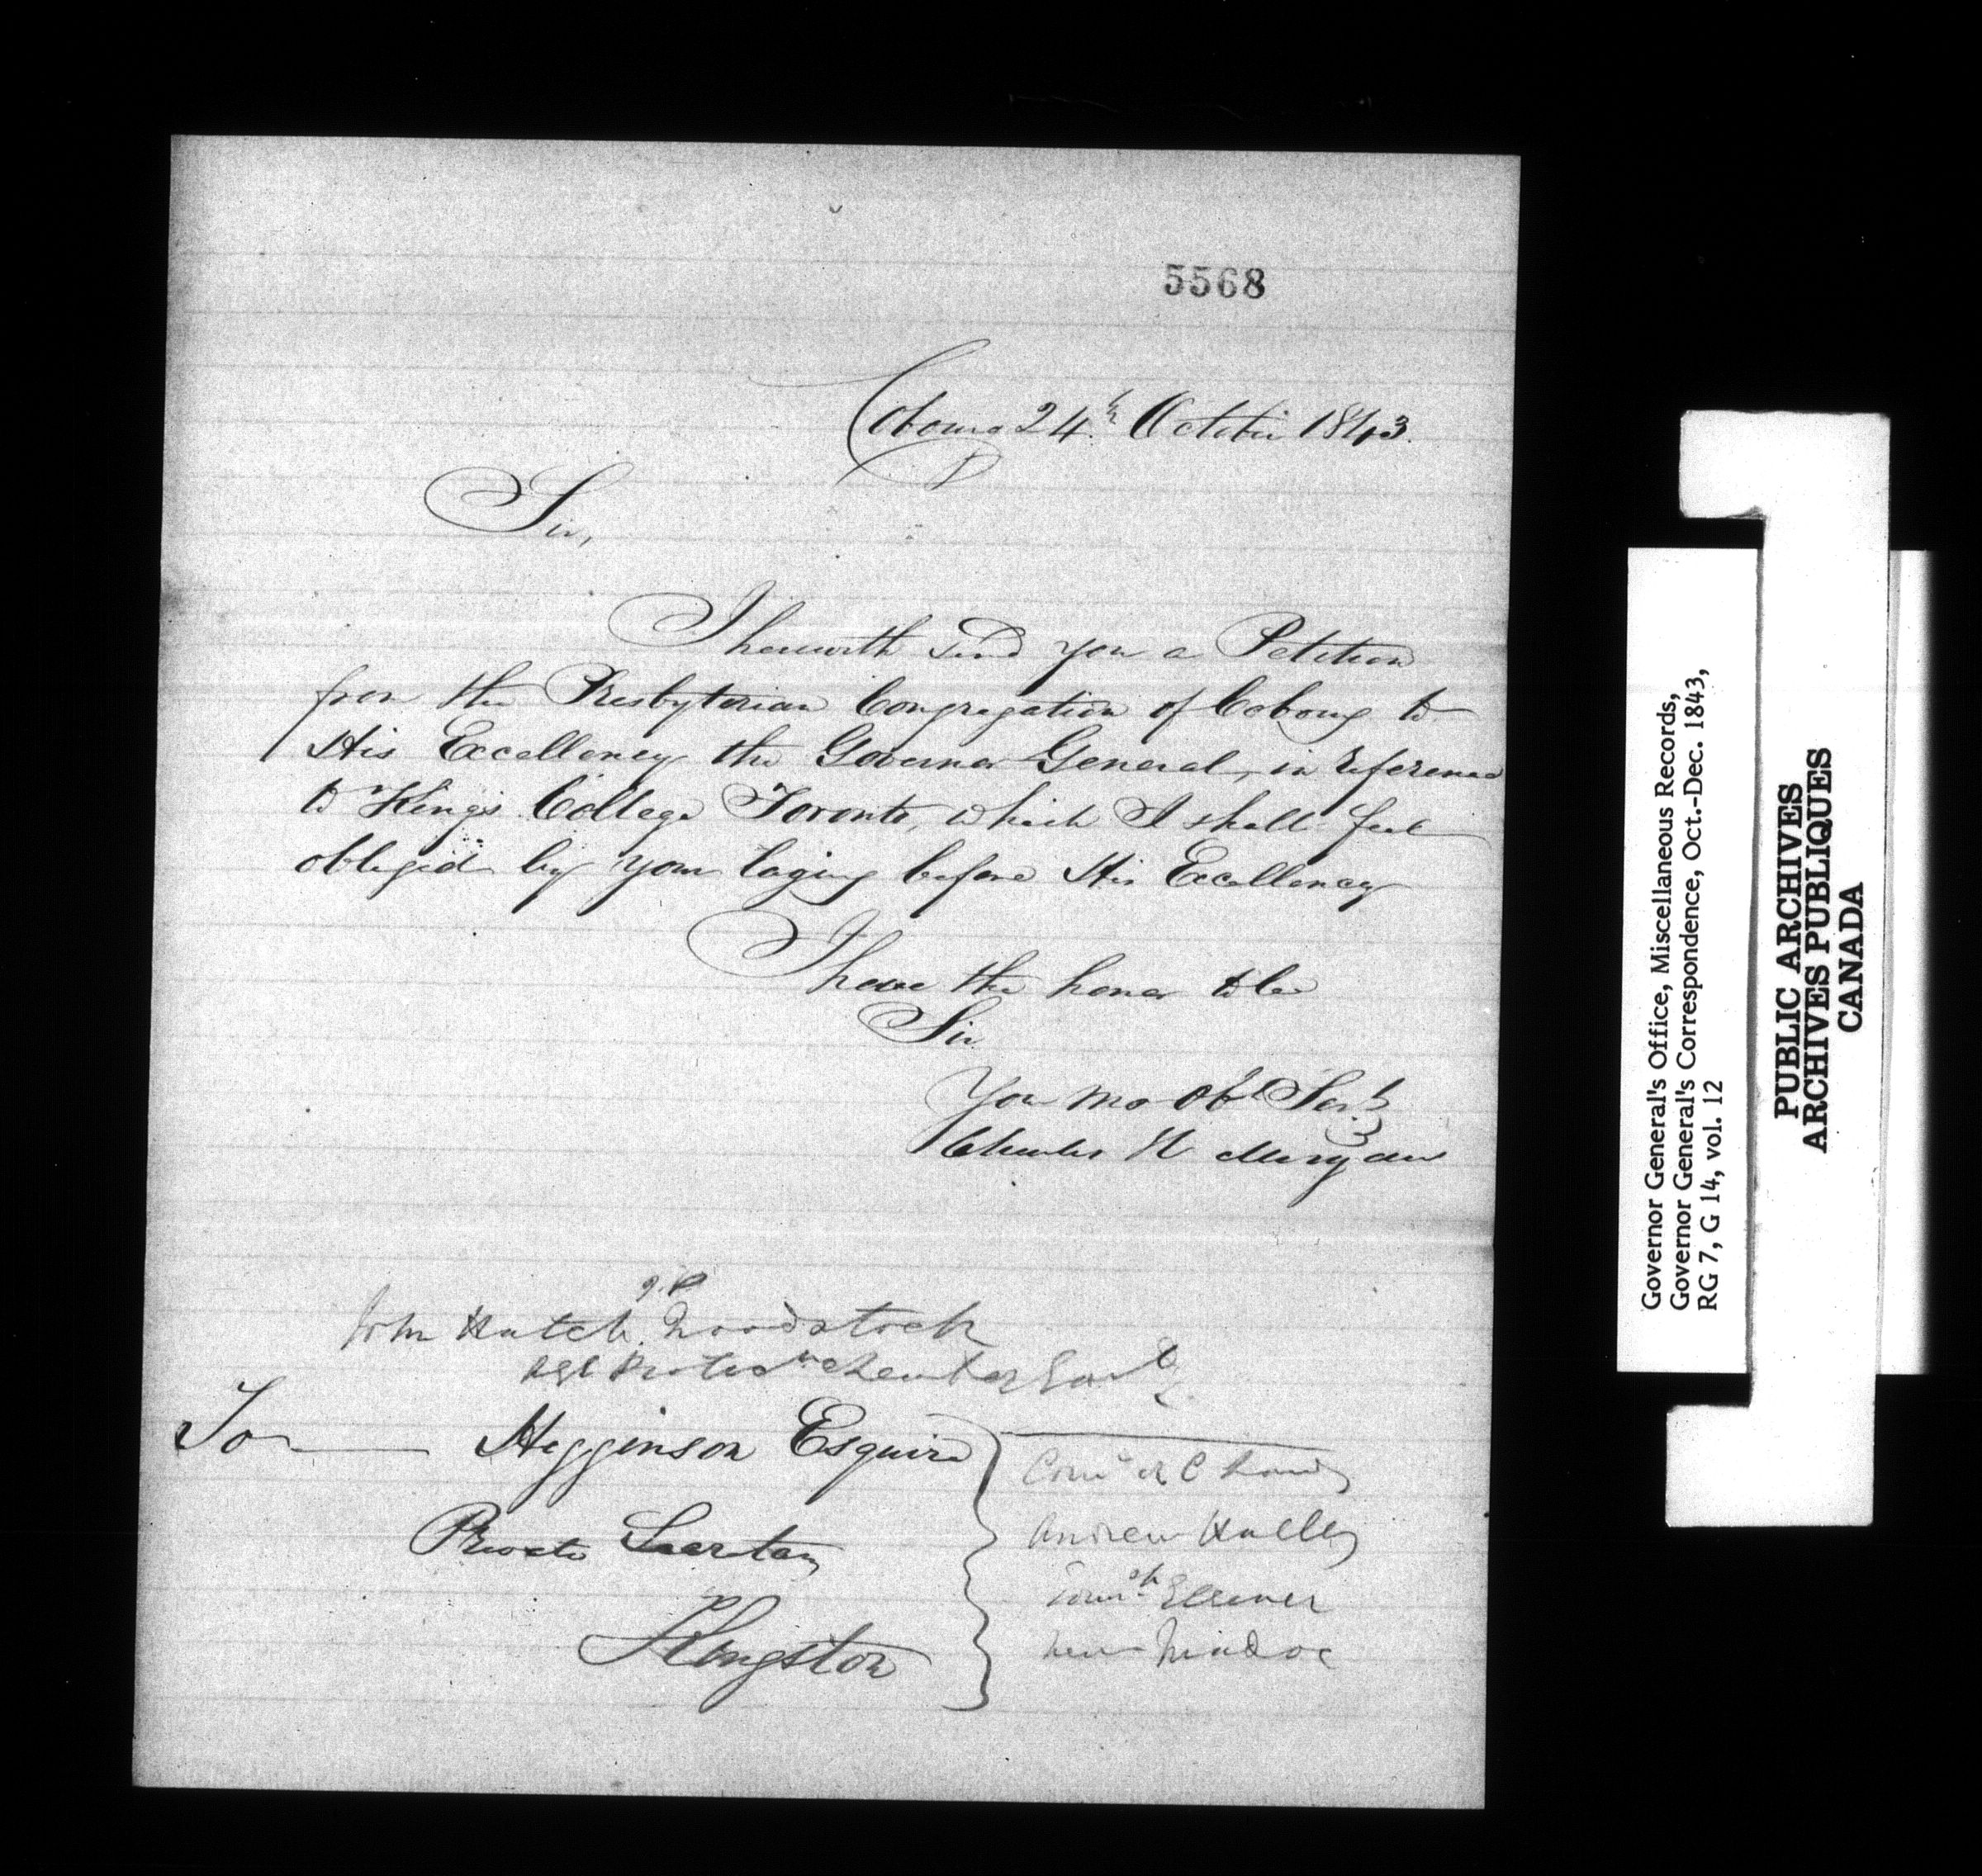 5568
Cobourg 24th October 1843.
Sir,
I herewith send you a Petition
from the Presbyterian Congregation of Cobourg to
His Excellency the Governor General, in reference
to King's College Toronto, which I shall feel
obliged by your laying before His Excellency
I have the honor to be
Sir
Your Mo Obt Servt
Charles H Morgan
J.P
John Hatch Woodstock
To Higginson Esquire
Private Secretary
Kingston
Andrew
Governor General's Office, Miscellaneous Records,
Governor General's Correspondence, Oct.-Dec. 1843,
RG 7, G 14, vol. 12
PUBLIC ARCHIVES
ARCHIVES PUBLIQUES
CANADA